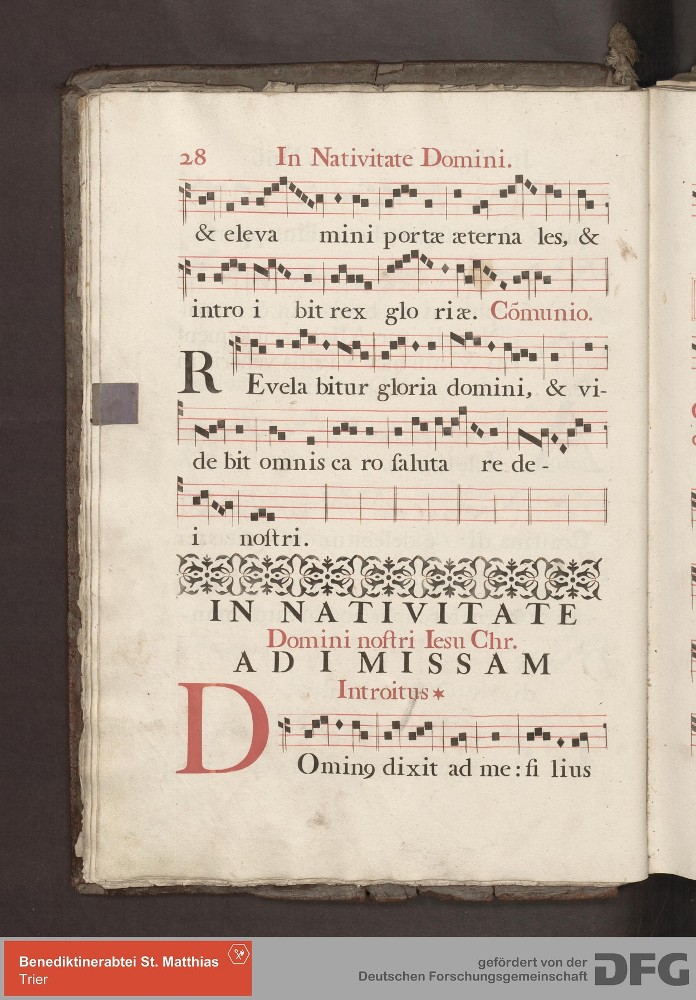 28 In Nativitate Domini.
& eleva mini portæ æterna les, &
intro i bit rex glo riæ. Cõmunio.
REvela bitur gloria domini, & vi-
de bit omnis ca ro ſaluta re de-
i noſtri.
IN NATIVITATE
Domini noſtri Iesu Chr.
AD I MISSAM
Introitus *
DOminꝯ dixit ad me: fi lius
Benediktinerabtei St. Matthias
Trier
gefördert von der
Deutschen Forschungsgemeinschaft DFG